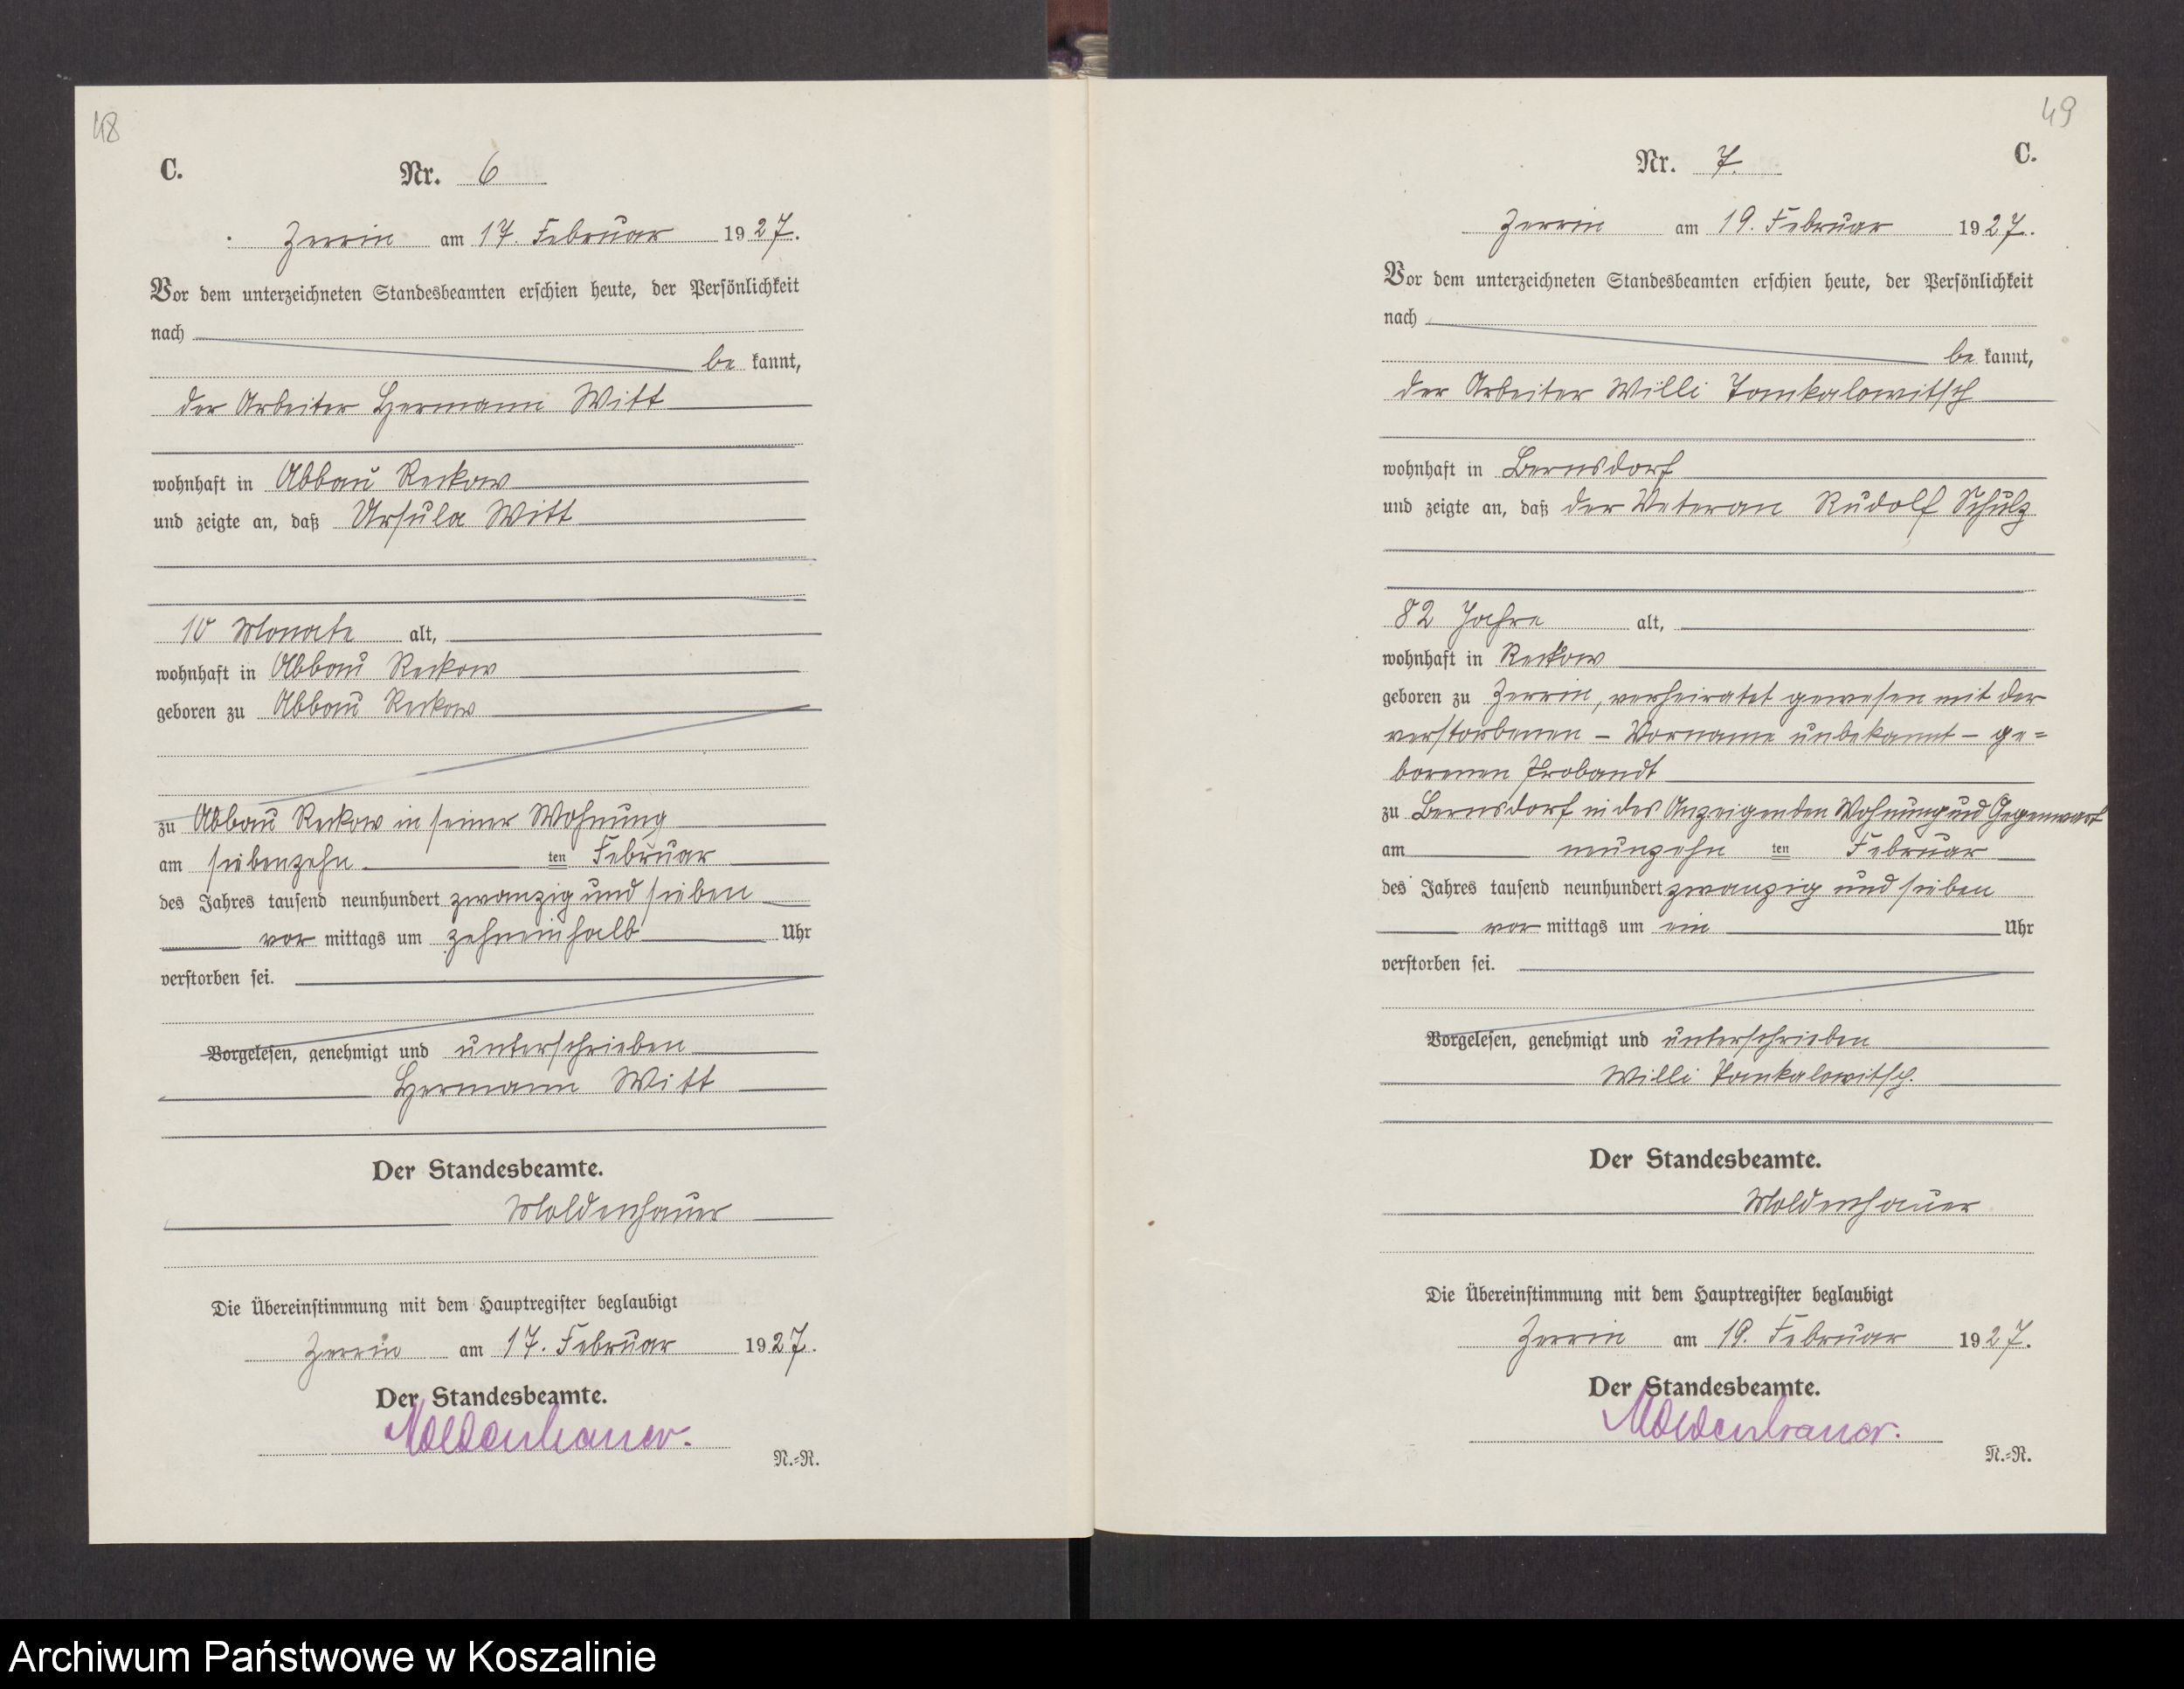 48
C.
Nr. 6
Zerrin am 17. Februar 1927.
Vor dem unterzeichneten Standesbeamten erschien heute, der Persönlichkeit
nach
be kannt,
der Arbeiter Hermann Witt
wohnhaft in Abbau Reckow
und zeigte an, daß Ursula Witt
10 Monate alt,
wohnhaft in Abbau Reckow
geboren zu Abbau Reckow
zu Abbau Reckow in seiner Wohnung
am siebenzehn ten Februar
des Jahres tausend neunhundert zwanzig und sieben
vor mittags um zehneinhalb Uhr
verstorben sei.
Vorgelesen, genehmigt und unterschrieben
Hermann Witt
Der Standesbeamte.
Moldenhauer
Die Übereinstimmung mit dem Hauptregister beglaubigt
Zerrin am 17. Februar 1927.
Der Standesbeamte.
Moldenhauer.
N.-R.
49
C.
Nr. 7.
Zerrin am 19. Februar 1927.
Vor dem unterzeichneten Standesbeamten erschien heute, der Persönlichkeit
nach
be kannt,
der Arbeiter Willi Tomkalowitsch
wohnhaft in Bernsdorf
und zeigte an, daß der Veteran Rudolf Schulz
82 Jahre alt,
wohnhaft in Reckow
geboren zu Zerrin, verheiratet gewesen mit der
verstorbenen – Vorname unbekannt – ge=
borenen Probandt
zu Bernsdorf in des Anzeigenden Wohnung und Gegenwart
am neunzehn ten Februar
des Jahres tausend neunhundert zwanzig und sieben
vor mittags um ein Uhr
verstorben sei.
Vorgelesen, genehmigt und unterschrieben
Willi Tomkalowitsch.
Der Standesbeamte.
Moldenhauer
Die Übereinstimmung mit dem Hauptregister beglaubigt
Zerrin am 19. Februar 1927.
Der Standesbeamte.
Moldenhauer.
N.-R.
Archiwum Państwowe w Koszalinie